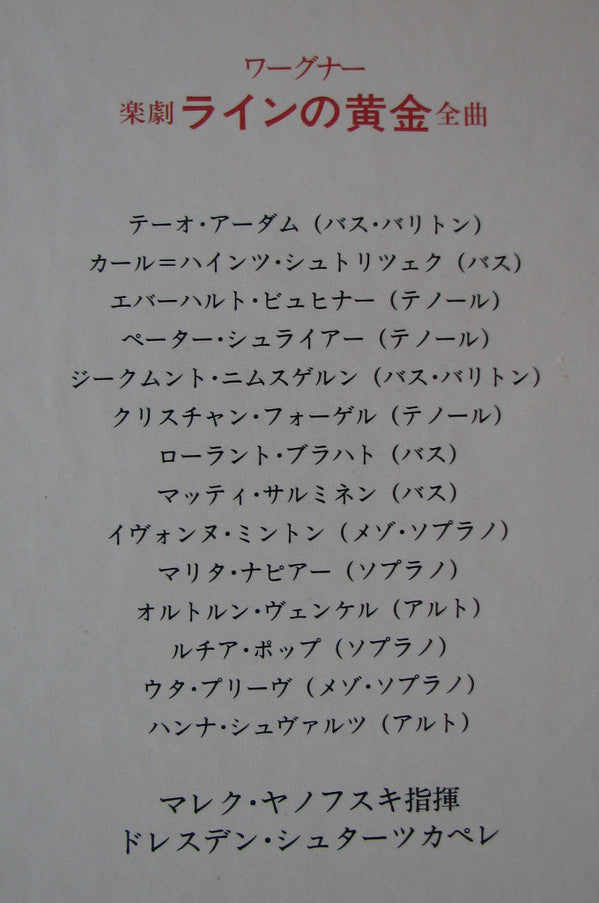 ワーグナー
楽劇 ラインの黄金 全曲
テーオ・アーダム（バス・バリトン）
カール＝ハインツ・シュトリツェク（バス）
エバーハルト・ビュヒナー（テノール）
ペーター・シュライアー（テノール）
ジークムント・ニムスゲルン（バス・バリトン）
クリスチャン・フォーゲル（テノール）
ローラント・ブラハト（バス）
マッティ・サルミネン（バス）
イヴォンヌ・ミントン（メゾ・ソプラノ）
マリタ・ナピアー（ソプラノ）
オルトルン・ヴェンケル（アルト）
ルチア・ポップ（ソプラノ）
ウタ・プリーヴ（メゾ・ソプラノ）
ハンナ・シュヴァルツ（アルト）
マレク・ヤノフスキ指揮
ドレスデン・シュターツカペレ